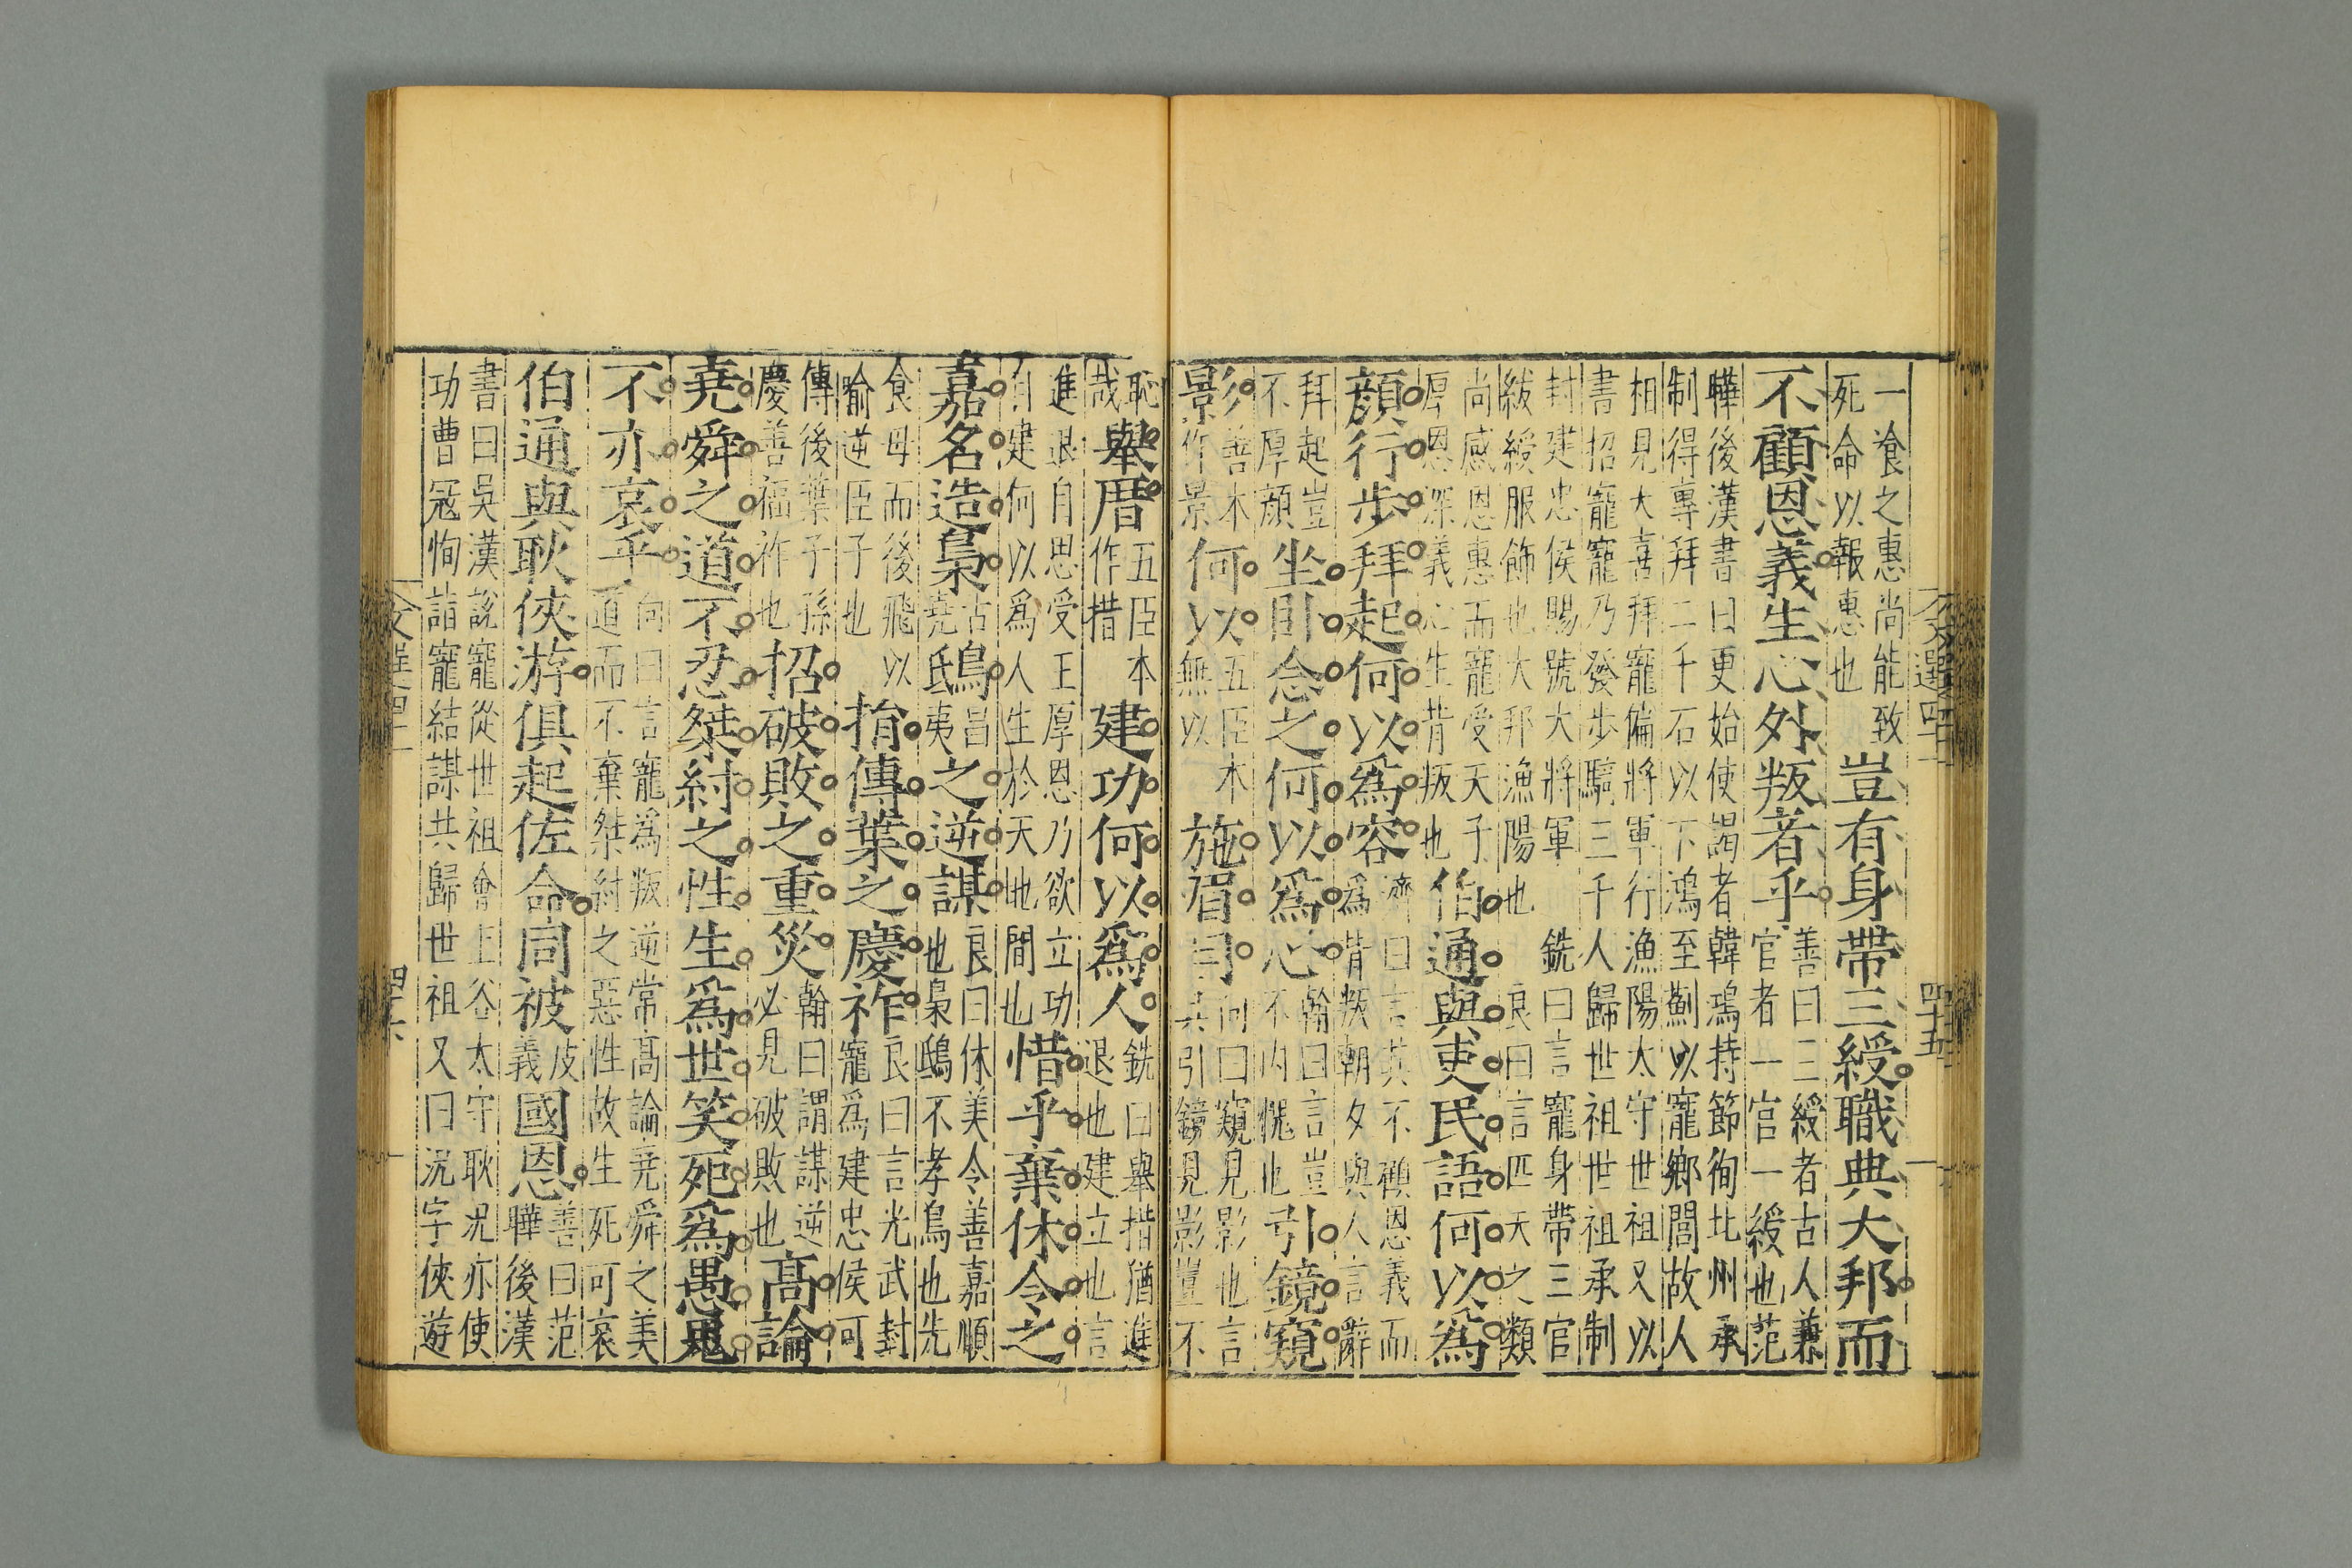 文選四十一
四十五
一飡之惠尚能致
死命以報惠也
豈有身帶三綬職典大邦而
不顧恩義生心外叛者乎
善曰三綬者古人兼
官者一官一綬也范
曄後漢書曰更始使謁者韓鴻持節徇北州承
制得專拜二千石以下鴻至薊以寵鄉閭故人
相見大喜拜寵偏將軍行漁陽太守世祖又以
書招寵寵乃發步騎三千人歸世祖世祖承制
封建忠侯賜號大將軍 銑曰言寵身帶三官
紱綬服飾也大邦漁陽也 良曰言匹天之類
尚感恩惠而寵受天子
厚恩深義心生背叛也
伯通與吏民語何以爲
顔行步拜起何以爲容
濟曰言其不顧恩義而
爲背叛朝夕與人言辭
拜起豈
不厚顔
坐卧念之何以爲心
翰曰言豈
不内愧也
引鏡窺
影
善本
作景
何以
五臣本
無以
施眉目
向曰窺見影也言
其引鏡見影豈不
恥
哉
舉厝
五臣本
作措
建功何以爲人
銑曰舉措猶進
退也建立也言
進退自思受王厚恩乃欲立功
自建何以爲人生於天地間也
惜乎棄休令之
嘉名造梟
古
堯
鴟
昌
夷
之逆謀
良曰休美令善嘉順
也梟鴟不孝鳥也先
食母而後飛以
喻逆臣子也
捐傳葉之慶祚
良曰言光武封
寵爲建忠侯可
傳後葉子孫
慶善福祚也
招破敗之重災
翰曰謂謀逆
必見破敗也
高論
堯舜之道不忍桀紂之性生爲世笑死爲愚鬼
不亦哀乎
向曰言寵爲叛逆常高論堯舜之美
道而不棄桀紂之惡性故生死可哀
伯通與耿俠游俱起佐命同被
皮
義
國恩
善曰范
曄後漢
書曰吳漢説寵從世祖會上谷太守耿況亦使
功曹寇恂詣寵結謀共歸世祖又曰況字俠遊